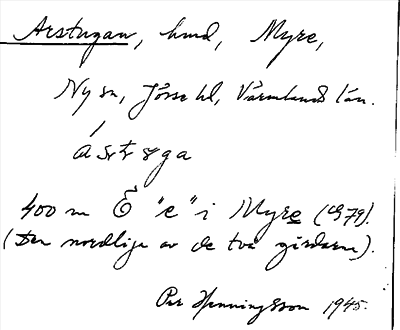 Arstugan, hmd, Myre,
Ny sn, Jösse hd, Värmlands län.
ástsga
400 m Ö "e" i Myre (G79).
(Den nordlige av de två gårdarna).
Per Henningsson 1945.